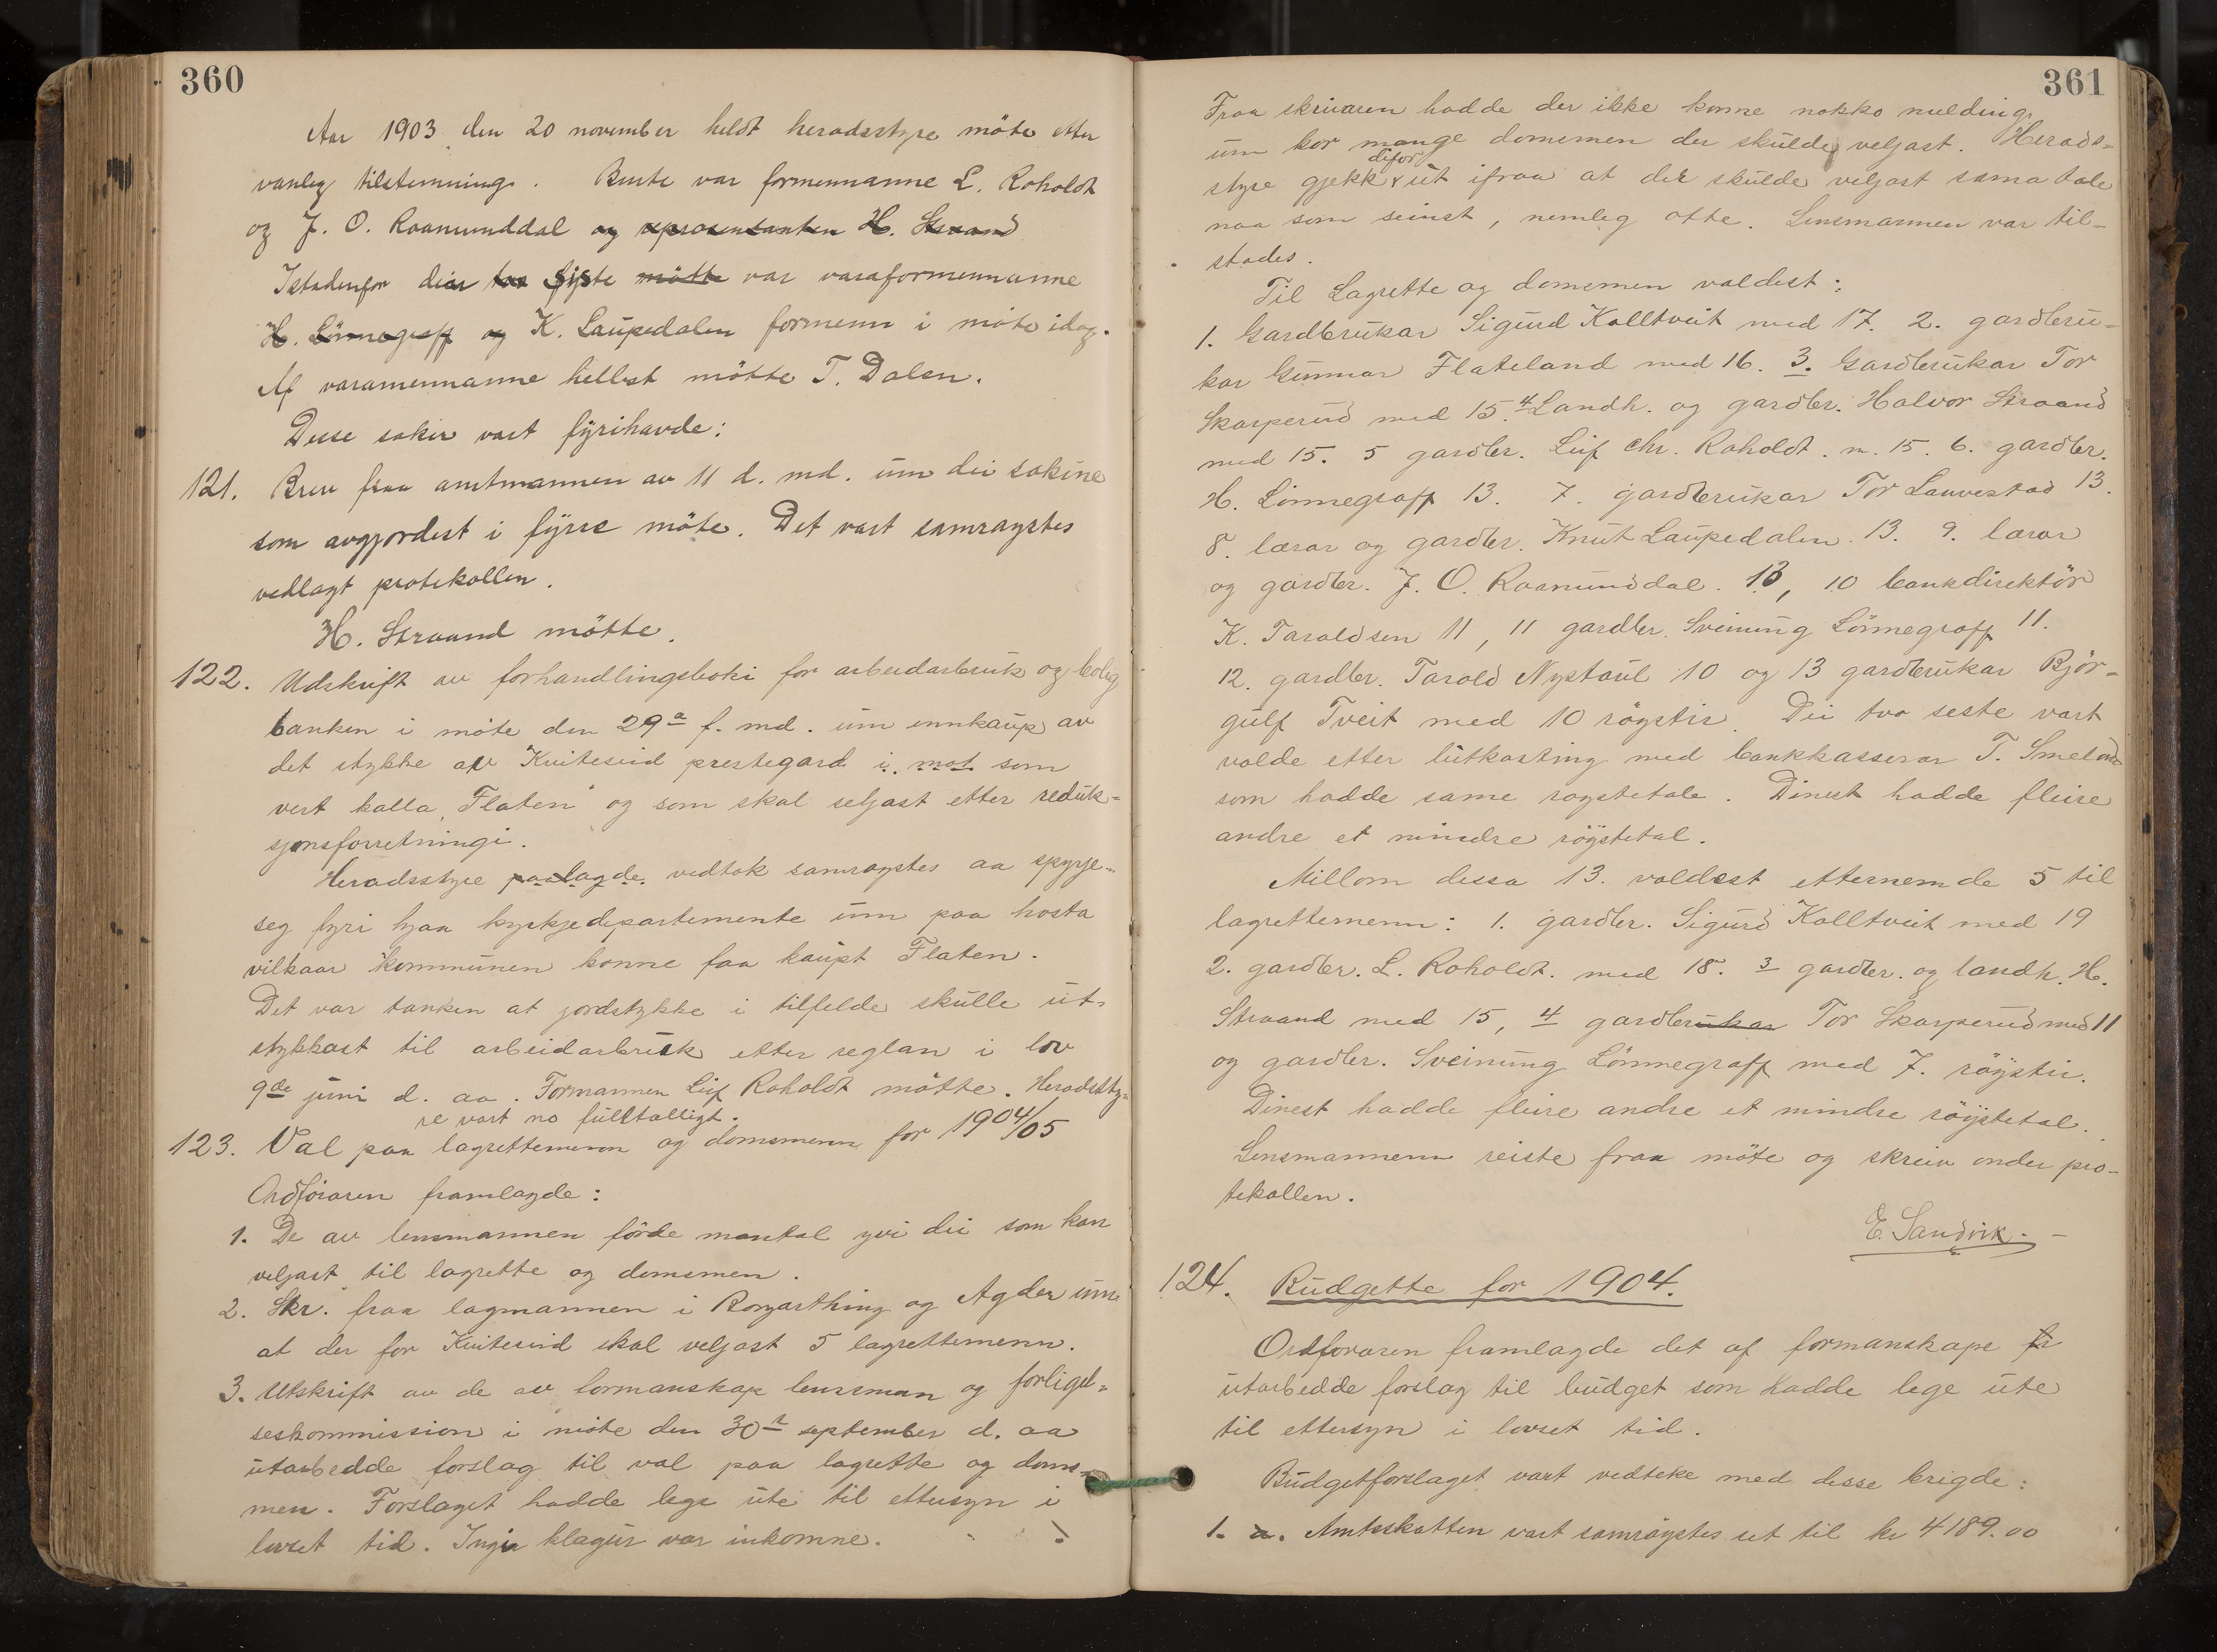 360
Aar 1903 den 20 november heldt heradsstyre möte etter
vanleg tilstemning. Burte var formennanne L. Roholdt
og J. O. Raamunddal og representanten H. Straand
Istadenfor dei tvo fyste mötte var varaformennanne
H. Lönnegraff og K. Laupedalen formenn i möte idag.
Af varamennanne hellest mötte T. Dalen.
Desse saker vart fyrihavde:
121. Brev fraa amtmannen av 11 d. md. um dei sakine
som avgjordest i fyrre möte. Det vart samraystes
vedlagt protokollen.
H. Straand mötte.
122. Udskrift av forhandlingsboki for arbeidarbruk og bolig
banken i möte den 29a f. md. um innkaup av
det stykke av Kviteseid prestegard i mat som
vert kalla "Flaten" og som skal seljast etter reduk=
sjonsforretningi.
Heradsstyre paalagde vedtok samraystes aa spyrje=
seg fyri hjaa kyrkjedepartemente um paa hosta
vilkaar kommunen konne faa kaupt Flaten.
Det var tanken at jordstykke i tilfelde skulle ut=
stykkast til arbeidarbruk etter reglan i lov
9de juni d. aa. Formannen Leif Roholdt mötte. Heradssty=
re vart no fulltalligt.
123. Val paa lagrettemenn og domsmenn for 1904/05
Ordföraren framlagde:
1. De av lensmannen förde mantal yvi dei som kan
veljast til lagrette og domsmen.
2. Skr. fraa lagmannen i Borgarthing og Agder um
at der for Kviteseid skal veljast 5 lagrettemenn.
3. Utskrift av de av formanskap lensman og forligel=
seskommission i möte den 30te september d. aa
utarbedde forslag til val paa lagrette og doms=
men. Forslaget hadde lege ute til ettersyn i
lovset tid. Ingir klagur var inkomne.
361
Fraa skrivaren hadde der ikke konne nokko melding
um kor mange domsmen der skulde veljast. Herads=
styre gjekk difor ut ifraa at der skulde veljast sama tale
naa som seinst, nemleg otte. Lensmannen var til=
stades.
Til Lagrette og domsmen valdest:
1. Gardbrukar Sigurd Kalltveit med 17. 2. gardbru=
kar Gunnar Flateland med 16. 3. Gardbrukar Tor
Skarperud med 15. 4 Landh. og gardbr. Halvor Straand
med 15. 5 gardbr. Leif Chr. Roholdt. m. 15. 6. gardbr.
H. Lönnegraff 13. 7. gardbrukar Tor Lauvestad 13.
8. lærar og gardbr. Knut Laupedalen. 13. 9. lærar
og gardbr. J. O. Raamunddal. 13, 10 bankdirektör
K. Taraldsen 11, 11 gardbr. Sveinung Lönnegraff 11.
12. gardbr. Tarald Nystaul 10 og 13 gardbrukar Björ=
gulf Tveit med 10 röystir. Dei tvo seste vart
valde etter lutkasting med bankkasserar T. Smeland
som hadde same raystetale. Dinest hadde fleire
andre et mindre röystetal.
Millom dessa 13. valdest etternemde 5 til
lagrettemenn: 1. gardbr. Sigurd Kalltveit med 19
2. gardbr. L. Roholdt. med 18. 3 gardbr. og landh. H.
Straand med 15, 4 gardbrukar Tor Skarperud med 11
og gardbr. Sveinung Lönnegraff med 7. röystir.
Dinest hadde fleire andre et mindre röystetal.
Lensmannenn reiste fraa möte og skreiv onder pro=
tekollen.
E. Sandvik.
124. Budgette for 1904.
Ordföraren framlagde det af formanskape fr
utarbedde forslag til budget som hadde lege ute
til ettersyn i lovset tid.
Budgetforslaget vart vedteke med desse brigde:
1. a. Amtsskatten vart samröystes set til kr 4189.00